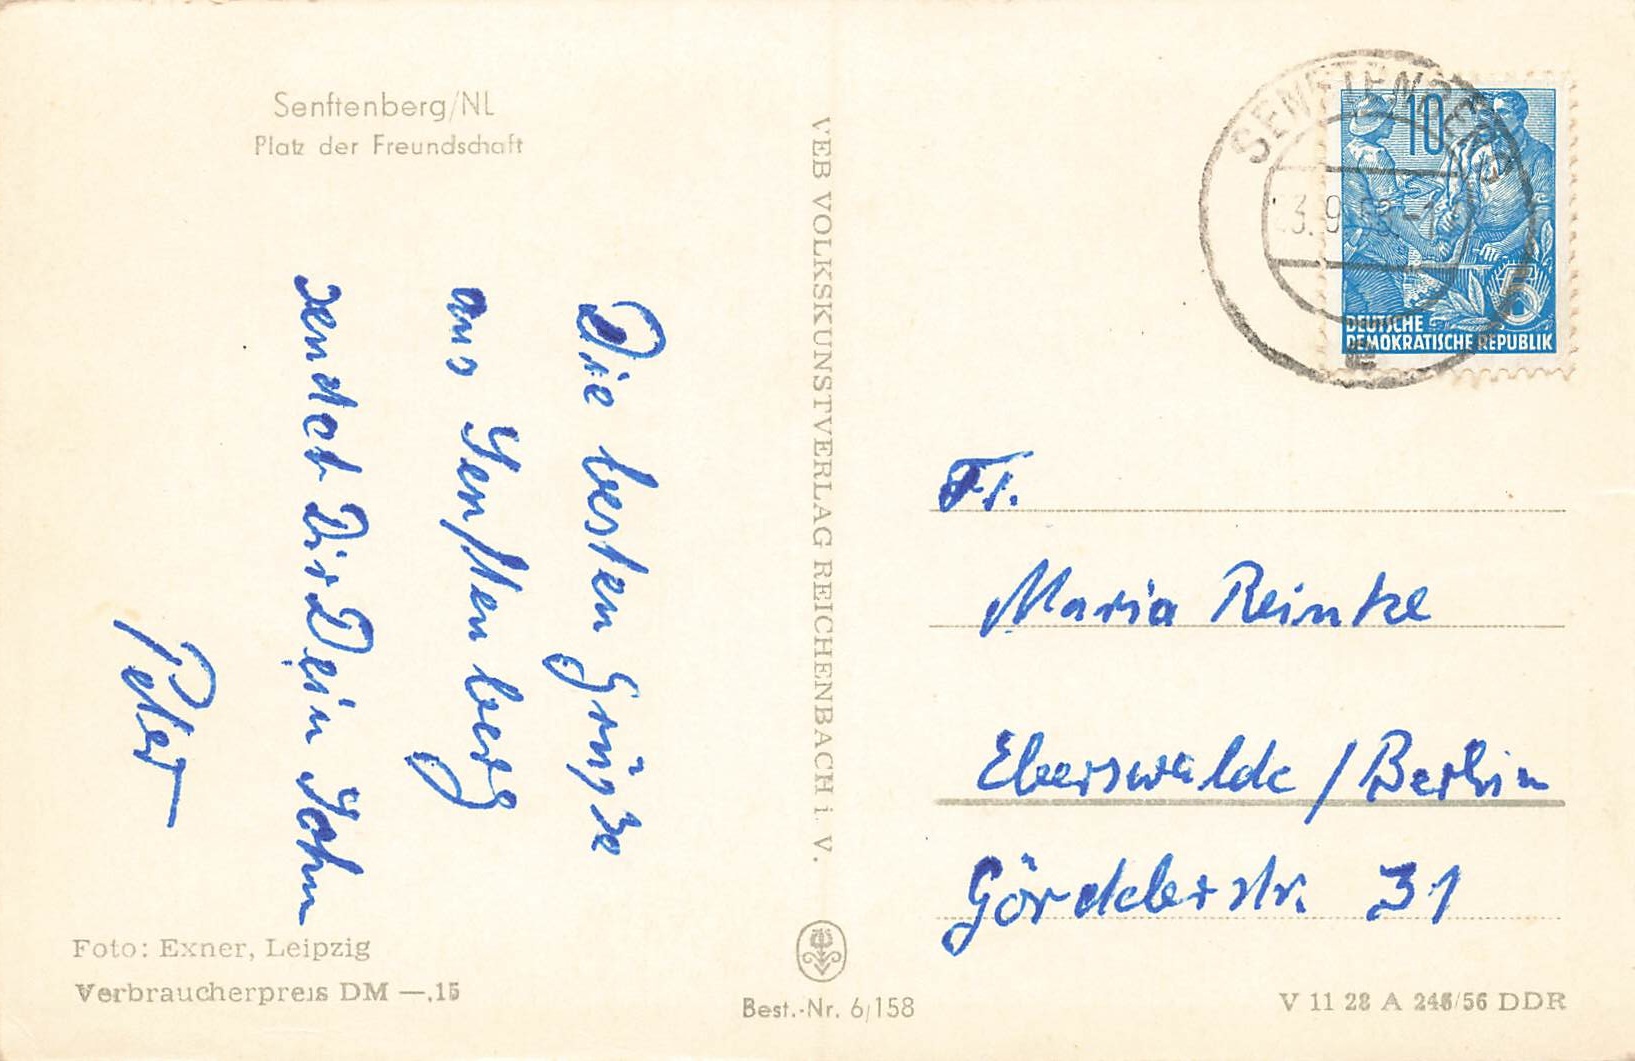 Senftenberg/NL
Platz der Freundschaft
Die besten Grüße
aus Senftenberg
sendet Dir Dein Sohn
Peter
Foto: Exner, Leipzig
Verbraucherpreis DM —,15
VEB VOLKSKUNSTVERLAG REICHENBACH i. V.
Best.-Nr. 6/158
SENFTENBERG
10
5
DEUTSCHE
DEMOKRATISCHE REPUBLIK
Fr.
Maria Reintke
Eberswalde / Berlin
Gördelerstr. 31
V 11 28 A 246/56 DDR